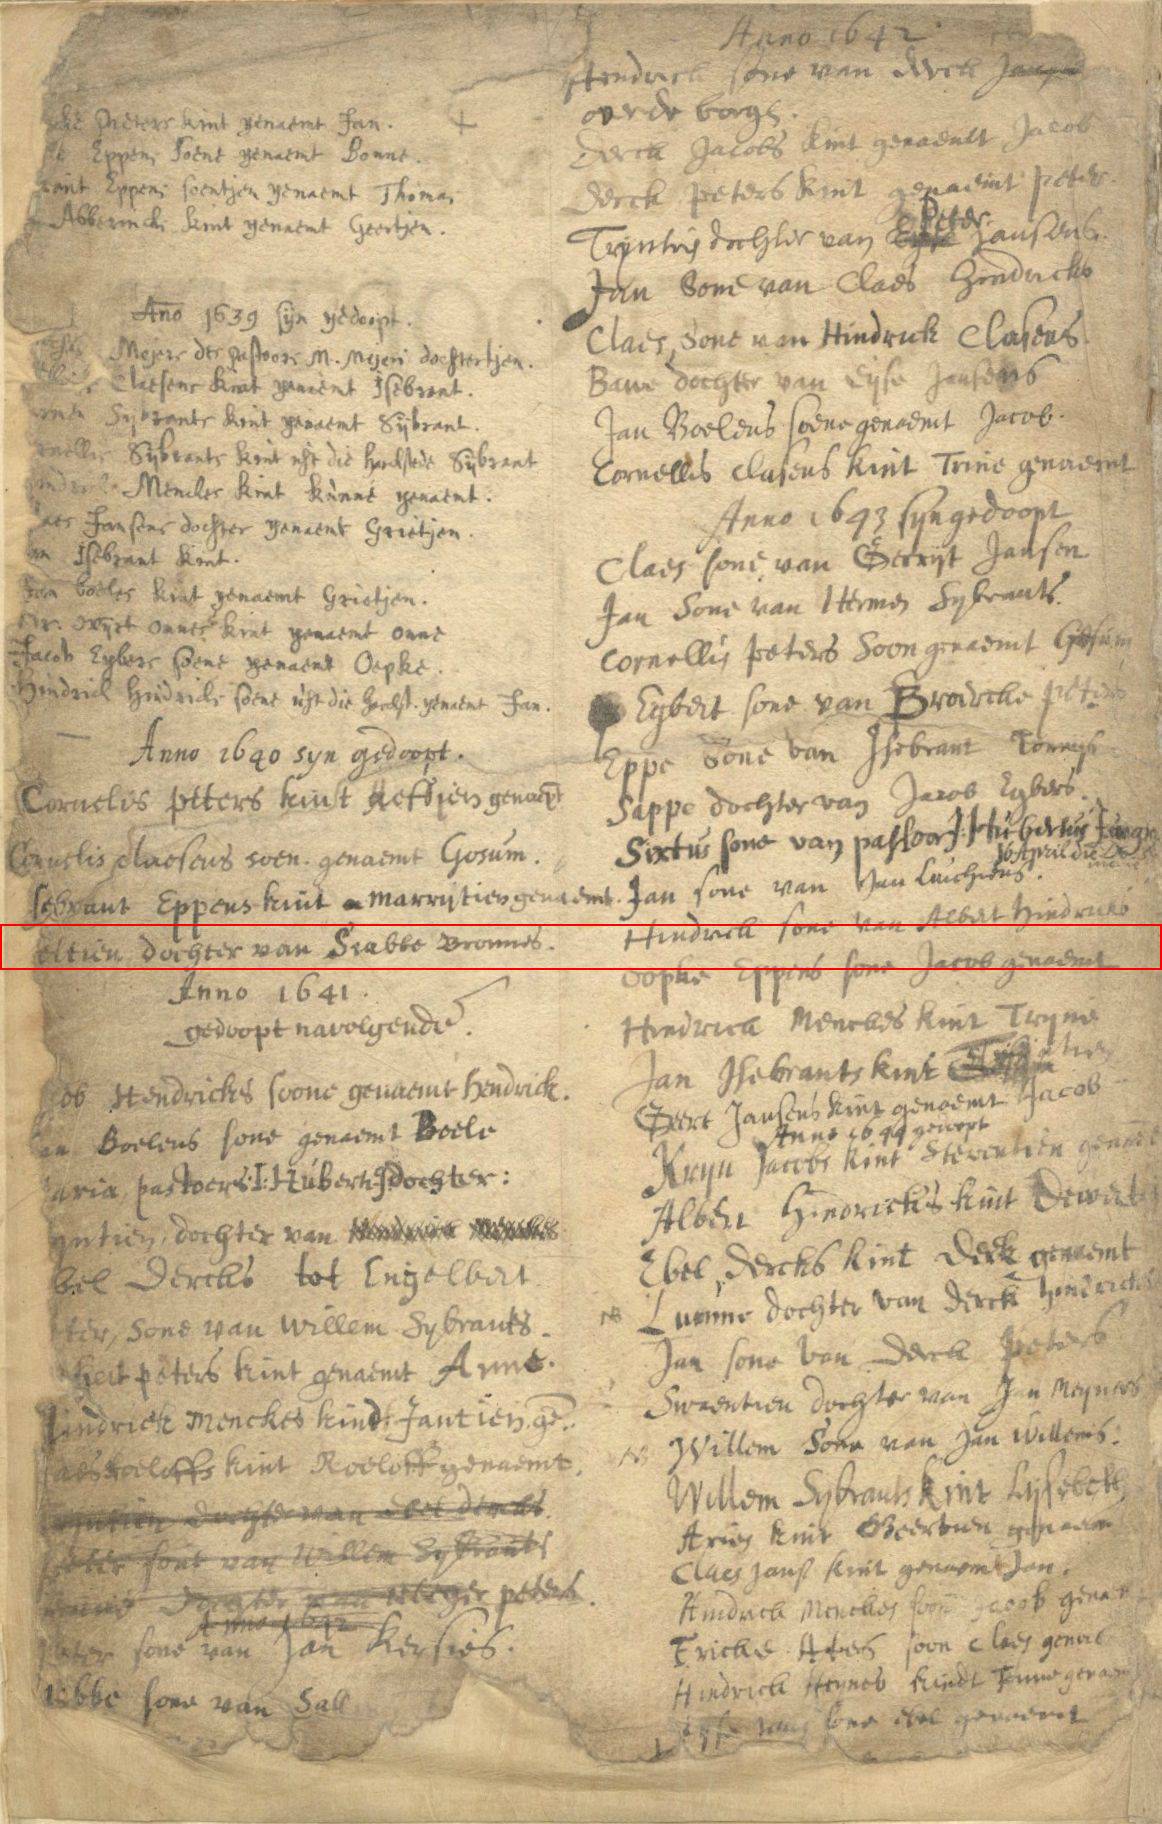 Pieters kint genaemt Jan.
Eppens soene genaemt Bonne.
Eppens soentjen genaemt Thomas
Abberincks kint genaemt Geertjen.
Ano 1639 syn gedoopt.
Meijers des pastoors M. Meijeri dochtertjen.
Claesens kint genaemt Isebrant.
Sybrants kint genaemt Sijbrant.
Sijbrants kint uht die Sybrant
Menckes kint Kunne genaemt.
Jansens dochter genaemt Grietjen.
Isebrant kint.
Jan Boeles kint genaemt Grietjen.
Onnes kint genaemt Onne
Jacob Egbers soene genaemt Oepke.
Hindrick Hindricks soene uht die genaemt Jan.
Anno 1640 syn gedoopt.
Cornelis peters kint genaemt
Cornelis claesens soen. genaemt Gosum.
sebrant Eppens kint marrijtien genaemt.
eltien dochter van Siabbe Bronnes.
Anno 1641.
gedoopt navolgende.
ob Hendrickes soone genaemt hendrick.
an Boelens sone genaemt Boele
aria, pastoers I: Huberti dochter:
yntien, dochter van
bel Dercks tot Engelbert
ter, sone van Willem Sybrants.
peters kint genaemt Anne.
hindrick Menckes kindt Jantien. ge.
aes Roeloffs kint Roeloff genaemt.
dochter van ebel dercks.
peter sone van Willem Sybrants
dochter van peters.
Anno 1642
peter sone van Jan Kersies.
iebbe sone van Sall
Anno 1642
Hendrick sone van derck
over de borgh.
Derck Jacobs kint genaemt Jacob
Derck peters kint genaemt peter.
Peter
Tryntis dochter van Jansens.
Jan Sone van Claes Hendricks
Claes, Sone van Hindrick Clasens
Bawe dochter van Eise Jansens
Jan Boelens soene genaemt Jacob.
Cornellis clasens kint Trine genaemt
Anno 1643 syn gedoopt
Claes sone van Gerryt Jansen
Jan Sone van Hermen Sybrants.
Cornellis peters Soon genaemt Gosum
Egbert sone van peters
Eppe Sone van Isebrant
Sappe dochter van Jacob Egbers.
Sixtus sone van pastoor J. Hubertus
16 April
Jan sone van Jan Luichiens.
Hindrick sone van Albert Hindricks
oopke Eppens sone Jacob genaemt
Hindrick Menckes kint Tryne
Jan Isebrants kint
Geert Jansens kint genaemt Jacob
Anno 1644 gedoopt
Kryn Jacobs kint Steventien genaemt
Albert Hindricks kint
Ebel, dercks kint Derk genaemt
NB Lumme dochter van derck hindricks
Jan sone van Derck Peters
Swaentien dochter van Jan Meyners
NB Willem Sone van Jan Willems.
Willem Sybrants kint Lijsebeth
Aries kint Geertien genaemt
Claes Jans kint genaemt Jan.
Hindrick Menckes soon Jacob genaemt
soon Claes genaemt
Hindrick Heynes kindt genaemt
sone ebel genaemt